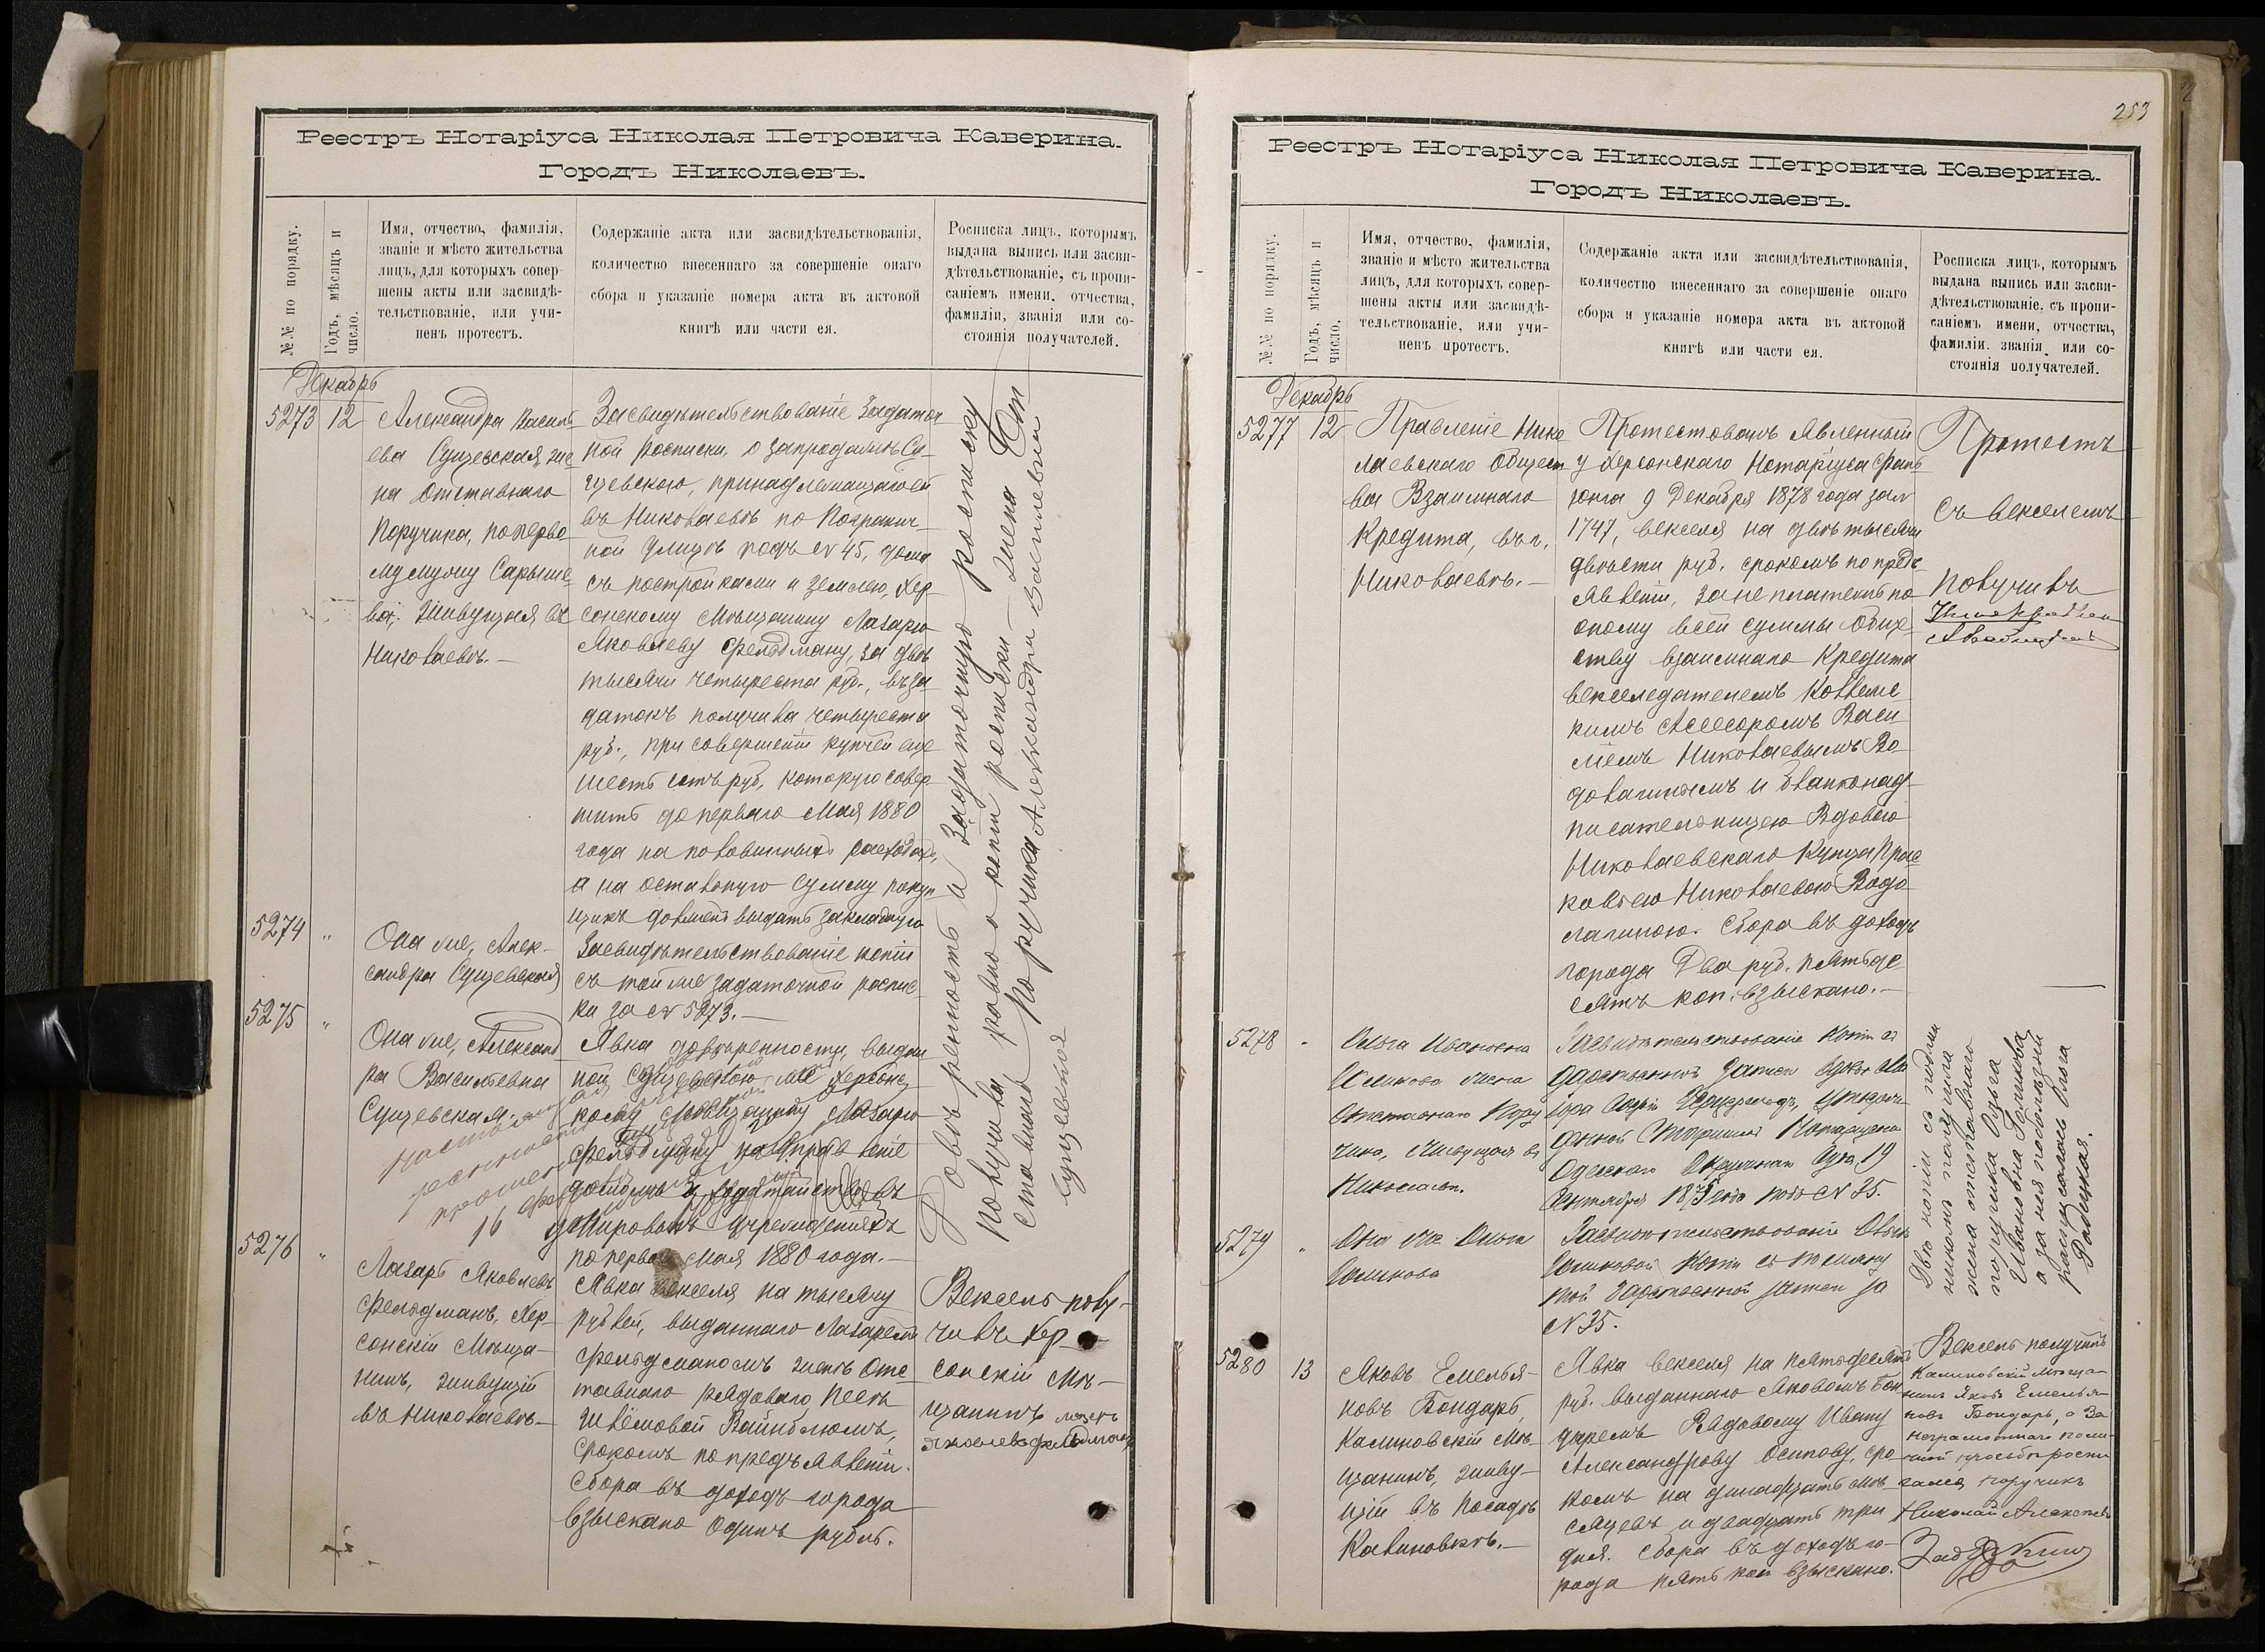 Реестръ Нотаріуса Николая Петровича Каверина.
Городъ Николаевъ.
№№ по порядку.
Годъ, мѣсяцъ и
число.
Имя, отчество, фамилія,
званіе и мѣсто жительства
лицъ, для которыхъ совер-
шены акты или засвидѣ-
тельствованіе, или учи-
ненъ протестъ.
Содержаніе акта или засвидѣтельствованія,
количество внесеннаго за совершеніе онаго
сбора и указаніе номера акта въ актовой
книгѣ или части ея.
Росписка лицъ, которымъ
выдана выпись или засви-
дѣтельствованіе, съ пропи-
саніемъ имени, отчества,
фамиліи, званія или со-
стоянія получателей.
Декабрь
5273 12
Александра Василь-
ева Сущевская, же-
на Отставнаго
Поручика, по перво-
му мужу Сарыче-
ва, живущая въ
Николаевѣ.—
Засвидѣтельствованіе Задаточ
ной росписки о запродажѣ Су-
щевскою, принадлежащаго ей
въ Николаевѣ по Погранич-
ной улицѣ подъ № 45, дома
съ постройками и землею, Хер-
сонскому Мѣщанину Лазарю
Яковлеву Фельдману, за двѣ
тысячи четыреста руб., въ за-
датокъ получила четыреста
руб., при совершеніи купчей еще
шесть сотъ руб., которую совер-
шить до перваго Мая 1880
года на половинныхъ расходахъ,
а на остальную сумму покуп
щикъ долженъ выдать закладную
5274 "
Она же, Алек-
сандра Сущевская
Засвидѣтельствованіе копіи
съ той же задаточной роспис-
ки за № 5273.—
5275 "
Она же, Александ
ра Васильевна
Сущевская.
Явка довѣренности, выдан
ной Сущевскою же Херсонс
кому Мѣщанину Лазарю
Фельдману на управленіе
домомъ и ходатайство въ
Мировыхъ учрежденіяхъ
по первое Мая 1880 года.—
Довѣренность и Задаточную росписку
получила равно и копіи росписки — жена От
ставнаго Поручика Александра Васильевна
Сущевская
5276 "
Лазарь Яковлевъ
Фельдманъ, Хер-
сонскій Мѣща-
нинъ, живущій
въ Николаевѣ.—
Явка векселя на тысячу
рублей, выданнаго Лазаремъ
Фельдманомъ женѣ Отс-
тавнаго рядоваго
Вайнблюмъ,
срокомъ по предъявленіи.
Сбора въ доходъ города
взыскано Одинъ рубль.
Вексель полу-
чилъ Хер-
сонскій Мѣ-
щанинъ
Яковлевъ Фельдманъ
253
Реестръ Нотаріуса Николая Петровича Каверина.
Городъ Николаевъ.
№№ по порядку.
Годъ, мѣсяцъ и
число.
Имя, отчество, фамилія,
званіе и мѣсто жительства
лицъ, для которыхъ совер-
шены акты или засвидѣ-
тельствованіе, или учи-
ненъ протестъ.
Содержаніе акта или засвидѣтельствованія,
количество внесеннаго за совершеніе онаго
сбора и указаніе номера акта въ актовой
книгѣ или части ея.
Росписка лицъ, которымъ
выдана выпись или засви-
дѣтельствованіе, съ пропи-
саніемъ имени, отчества,
фамиліи, званія или со-
стоянія получателей.
Декабрь
5277 12
Правленіе Нико
лаевскаго Общест
ва Взаимнаго
Кредита, въ г.
Николаевѣ.—
Протестованъ явленный
у Херсонскаго Нотаріуса
9 Декабря 1878 года за №
1747, векселя на двѣ тысячи
двѣсти руб. срокомъ по предъ-
явленіи, за неплатежъ по
оному всей суммы Общес-
тву взаимнаго Кредита
векселедателемъ Коллежс-
кимъ Асессоромъ Васи-
ліемъ Николаевымъ Во-
долагинымъ и бланконад-
писательницею Вдовою
Николаевскаго Купца Прас-
ковьею Николаевою Водо-
лагиною. Сбора въ доходъ
города Два руб. пятьде-
сятъ коп. взыскано.—
Протестъ
съ векселемъ
получилъ
5278 "
Ольга Ивановна
жена
Отставнаго Пору
чика, живущая въ
Николаевѣ.
Засвидѣтельствованіе копіи съ
дарственной записи
Старшимъ Нотаріусомъ
Одесскаго Окружнаго Суда 19
Сентября подъ № 35.
5279 "
Она же Ольга
Засвидѣтельствованіе
копіи съ
той дарственной записи за
№ 35.
Двѣ копіи съ подлин
никомъ получила
жена отставнаго
поручика Ольга
Ивановна
а за нея
росписалась Ольга
5280 13
Яковъ Емелья-
новъ Бондарь,
Калиновскій Мѣ-
щанинъ, живу-
щій въ Посадѣ
Калиновкѣ.—
Явка векселя на пятьдесятъ
руб. выданнаго Яковомъ Бон
даремъ Рядовому Ивану
Александрову Осипову, сро-
комъ на двѣнадцать мѣ-
сяцевъ и двадцать три
дня. Сбора въ доходъ го-
рода пять коп взыскано.
Вексель получилъ
Калиновскій Мѣща-
нинъ Яковъ Емелья-
новъ Бондарь, а за
неграмотнаго по лич-
ной просьбѣ роспи-
сался поручикъ
Николай Алексеевъ